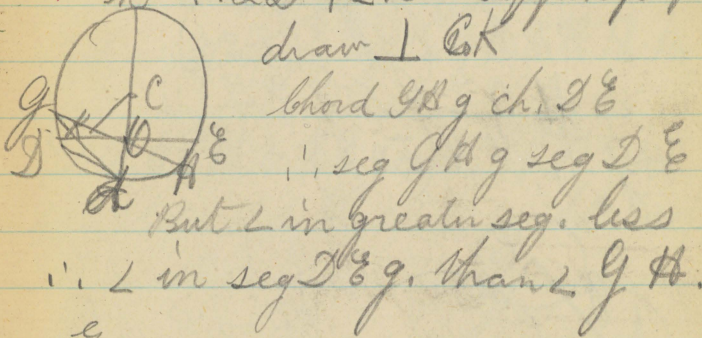 draw ⊥ CK
Chord GH g ch. DE
∴ seg GH g seg DE
But ∠ in greater seg. less
∴ ∠ in seg DE g. than ∠ GH.
G
D
C
O
E
H